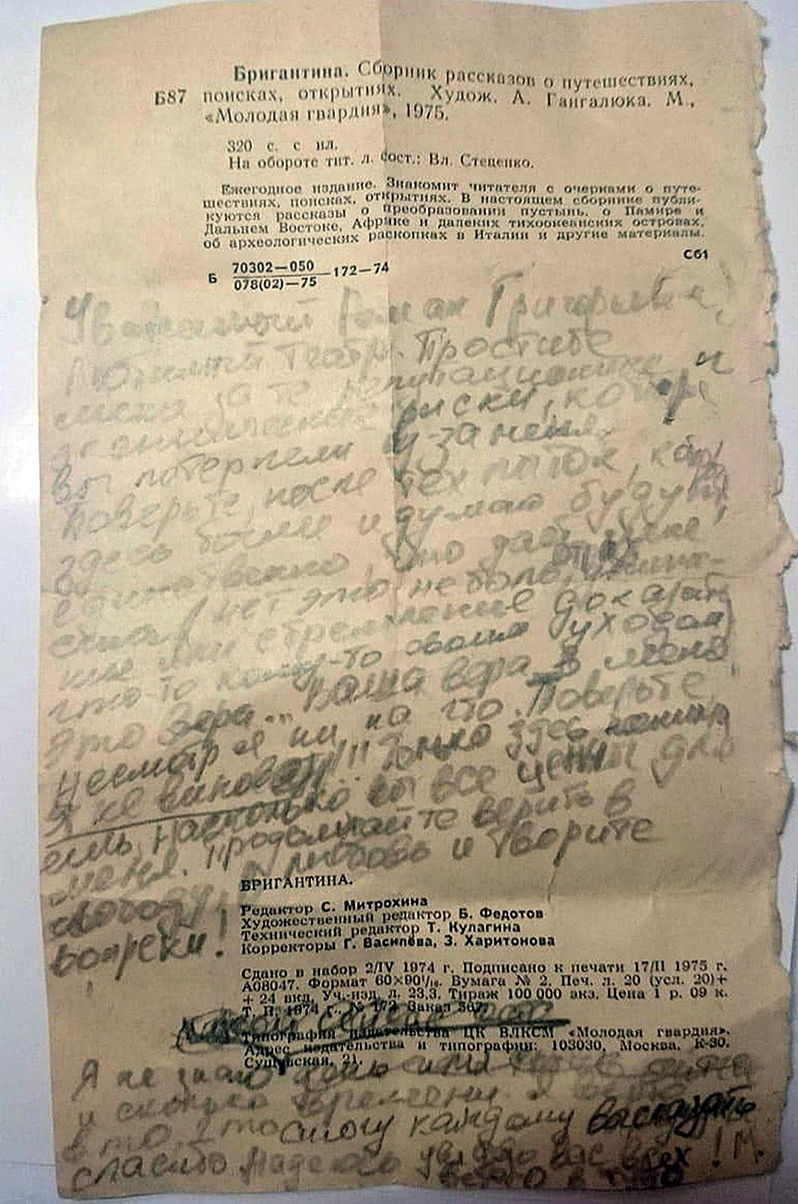 Бригантина. Сборник рассказов о путешествиях,
Б87 поисках, открытиях. Худож. А. Гангалюка. М.,
«Молодая гвардия», 1975.
320 с. с ил.
На обороте тит. л. сост.: Вл. Стеценко.
Ежегодное издание. Знакомит читателя с очерками о путе-
шествиях, поисках, открытиях. В настоящем сборнике публи-
куются рассказы о преобразовании пустынь, о Памире и
Дальнем Востоке, Африке и далеких тихоокеанских островах,
об археологических раскопках в Италии и другие материалы.
Б 70302—050
078(02)—75 —172—74
Сб1
Уважаемый Роман Григорьевич,
Любимый Театр. Простите
меня за те репутационные и
риски, которые
вы потерпели из-за меня.
Поверьте, после тех пыток, кот
здесь были и думаю будут,
единственно, что даёт мне
силы / нет это не боль,
или стремление доказать
что-то кому-то своим духовам
Это Вера... Ваша вера в меня
Несмотря ни на что. Поверьте
Я не виноват!!! Только здесь
ешь, насколько вы все ценны для
меня. Продолжайте верить в
свободу, любовь и творите
вопреки!
БРИГАНТИНА.
Редактор С. Митрохина
Художественный редактор Б. Федотов
Технический редактор Т. Кулагина
Корректоры Г. Василёва, З. Харитонова
Сдано в набор 2/IV 1974 г. Подписано к печати 17/II 1975 г.
А08047. Формат 60×90¹/₁₆. Бумага № 2. Печ. л. 20 (усл. 20)+
+ 24 вкл. Уч.-изд. л. 23,3. Тираж 100 000 экз. Цена 1 р. 09 к.
Т. П. 1974 г., № 172. Заказ 367.
Типография издательства ЦК ВЛКСМ «Молодая гвардия».
Адрес издательства и типографии: 103030, Москва, К-30,
Сущевская, 21.
Я не знаю день или
и сколько времени. Я
в то, что смогу каждому вас сказать
спасибо Надеюсь увижу вас всех! М.